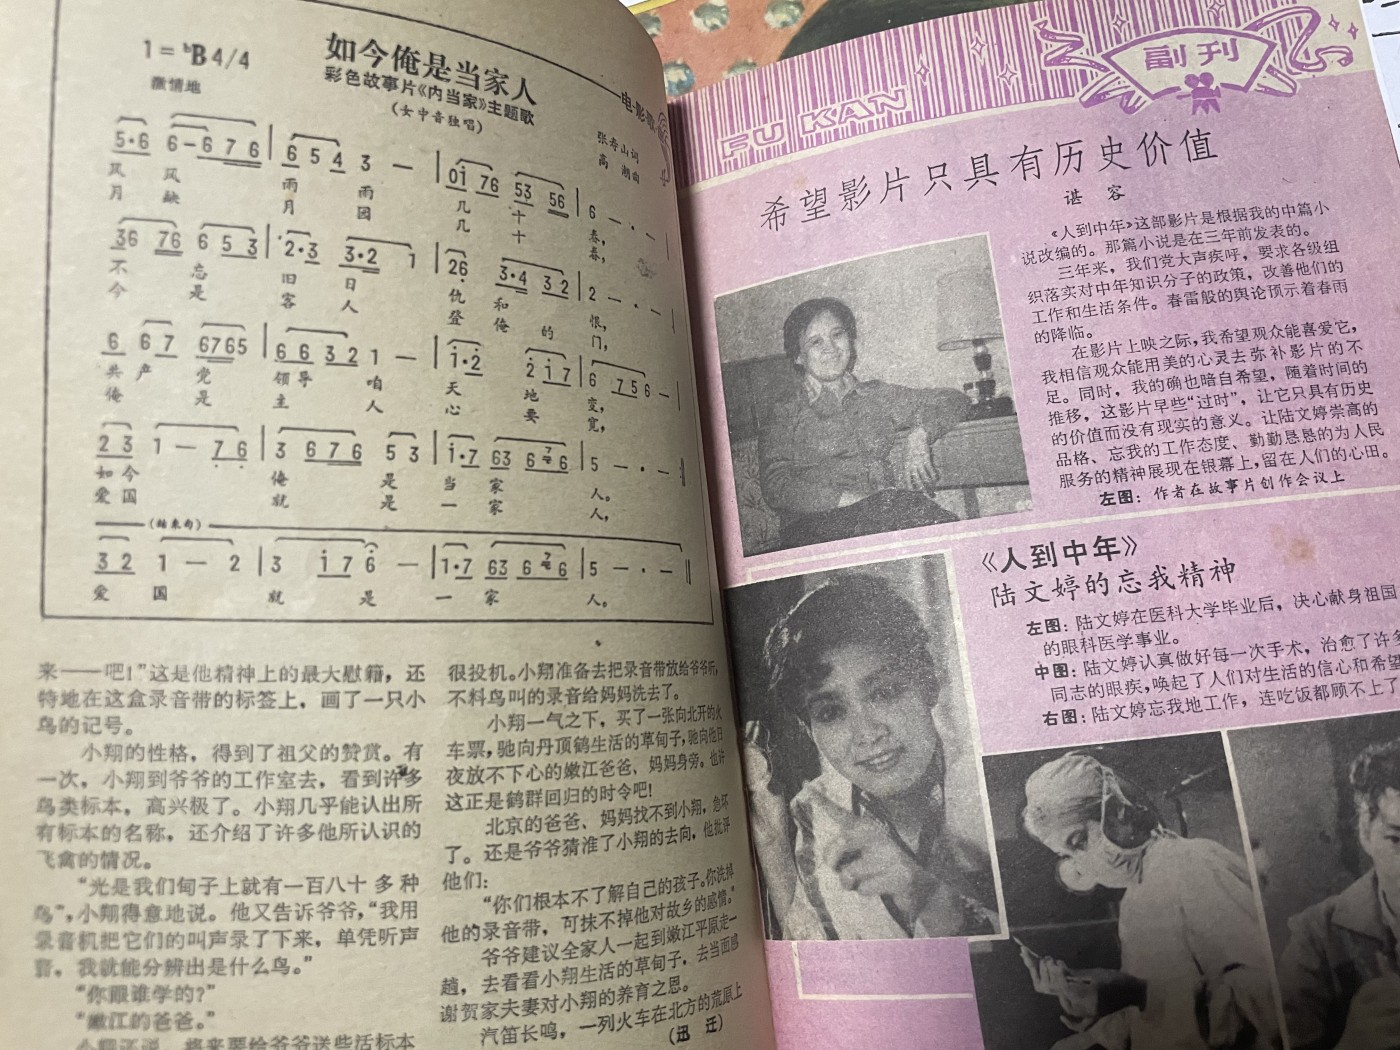 如今俺是当家人
彩色故事片《内当家》主题歌
(女中音独唱)
1=ᵇB 4/4
激情地
电·影·歌·曲
张寿山词
高潮曲
5·6 6-6 7 6 | 6 5 4 3 — | 0i 76 53 56 | 6 — · — |
风 风 雨 雨 几 十 春,
月 缺 月 圆 几 十 春,
36 76 6 5 3 | 2·3 3·2 1 | 26 3·4 32 | 2 — · — |
不 忘 旧 日 仇 和 恨,
今 是 客 人 登 俺 的 门,
6 6 7 6765 | 6 6 3 2 1 — | i·2 2 i 7 | 6 7 5 6 — |
共 产 党 领 导 咱 天 地 变,
俺 是 主 人 心 要 宽,
2 3 1 — 7 6 | 3 6 7 6 5 3 | i·7 63 6 7 6 | 5 — · — :||
如 今 俺 是 当 家 人。
爱 国 就 是 一 家 人,
(结束句)
3 2 1 — 2 | 3 i 7 6 — | 1·7 63 6 2 6 | 5 — · — ||
爱 国 就 是 一 家 人。
来——吧!”这是他精神上的最大慰籍,还
特地在这盒录音带的标签上,画了一只小
鸟的记号。
小翔的性格,得到了祖父的赞赏。有
一次,小翔到爷爷的工作室去,看到许多
鸟类标本,高兴极了。小翔几乎能认出所
有标本的名称,还介绍了许多他所认识的
飞禽的情况。
“光是我们甸子上就有一百八十多种
鸟”,小翔得意地说。他又告诉爷爷,“我用
录音机把它们的叫声录了下来,单凭听声
音,我就能分辨出是什么鸟。”
“你跟谁学的?”
“嫩江的爸爸。”
小翔还说,将来要给爷爷送些活标本
很投机。小翔准备去把录音带放给爷爷听,
不料鸟叫的录音给妈妈洗去了。
小翔一气之下,买了一张向北开的火
车票,驰向丹顶鹤生活的草甸子,驰向他日
夜放不下心的嫩江爸爸、妈妈身旁。也许
这正是鹤群回归的时令吧!
北京的爸爸、妈妈找不到小翔,急坏
了。还是爷爷猜准了小翔的去向,他批评
他们:
“你们根本不了解自己的孩子。你洗掉
他的录音带,可抹不掉他对故乡的感情。”
爷爷建议全家人一起到嫩江平原走一
趟,去看看小翔生活的草甸子,去当面感
谢贺家夫妻对小翔的养育之恩。
汽笛长鸣,一列火车在北方的荒原上
(迅 迁)
FU KAN
副刊
希望影片只具有历史价值
谌 容
《人到中年》这部影片是根据我的中篇小
说改编的。那篇小说是在三年前发表的。
三年来,我们党大声疾呼,要求各级组
织落实对中年知识分子的政策,改善他们的
工作和生活条件。春雷般的舆论预示着春雨
的降临。
在影片上映之际,我希望观众能喜爱它,
我相信观众能用美的心灵去弥补影片的不
足。同时,我的确也暗自希望,随着时间的
推移,这影片早些“过时”,让它只具有历史
的价值而没有现实的意义。让陆文婷崇高的
品格、忘我的工作态度、勤勤恳恳的为人民
服务的精神展现在银幕上,留在人们的心田。
左图:作者在故事片创作会议上
《人到中年》
陆文婷的忘我精神
左图:陆文婷在医科大学毕业后,决心献身祖国
的眼科医学事业。
中图:陆文婷认真做好每一次手术,治愈了许多
同志的眼疾,唤起了人们对生活的信心和希望
右图:陆文婷忘我地工作,连吃饭都顾不上了